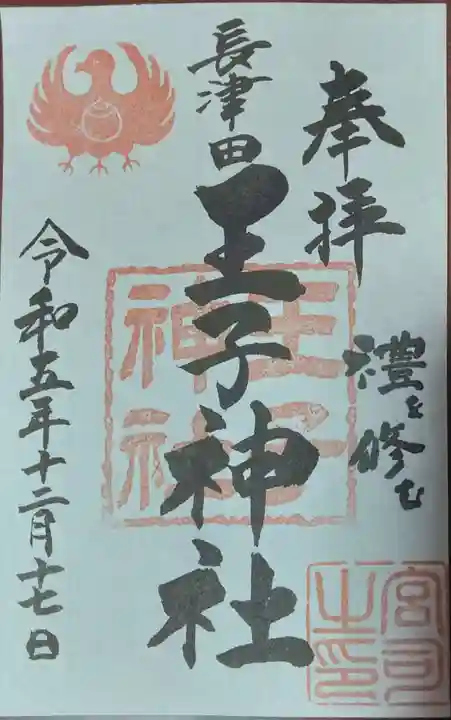 奉拝
禮を修む
長津田
王子神社
王子
神社
宮司
之印
令和五年十二月十七日